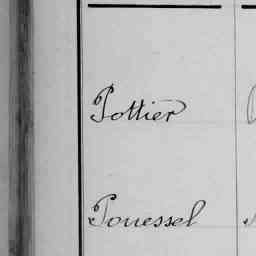 Pottier
Pouessel